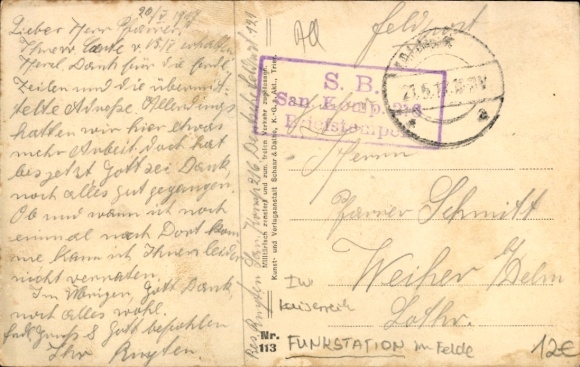 20/V 1917
Lieber Herr Pfarrer,
Ihrer Karte v. 15/V erhalten
Herzl. Dank für die frdl.
Zeilen und die übermit-
telte Adresse. Allerdings
hatten wir hier etwas
mehr Arbeit. Doch hat
bis jetzt Gott sei Dank,
noch alles gut gegangen.
Ob und wann ich noch
einmal nach Dort kom
me kann ich Ihnen leider
nicht verraten.
Im Übrigen, Gott Dank,
noch alles wohl.
Gruss & Gott befohlen
Ihr Ruyten.
Ruyten San. Komp. 216
Militärisch zensiert und zum freien Verkehr zugelassen.
Kunst- und Verlagsanstalt Schaar & Dathe, K.-G. a. Akt., Trier.
Nr.
113
Feldpost
S. B.
San. Komp. 216
Briefstempel
Herrn
Pfarrer Schmitt
Weiher
Lothr.
IW
Kaiserreich
FUNKSTATION im Felde
12€